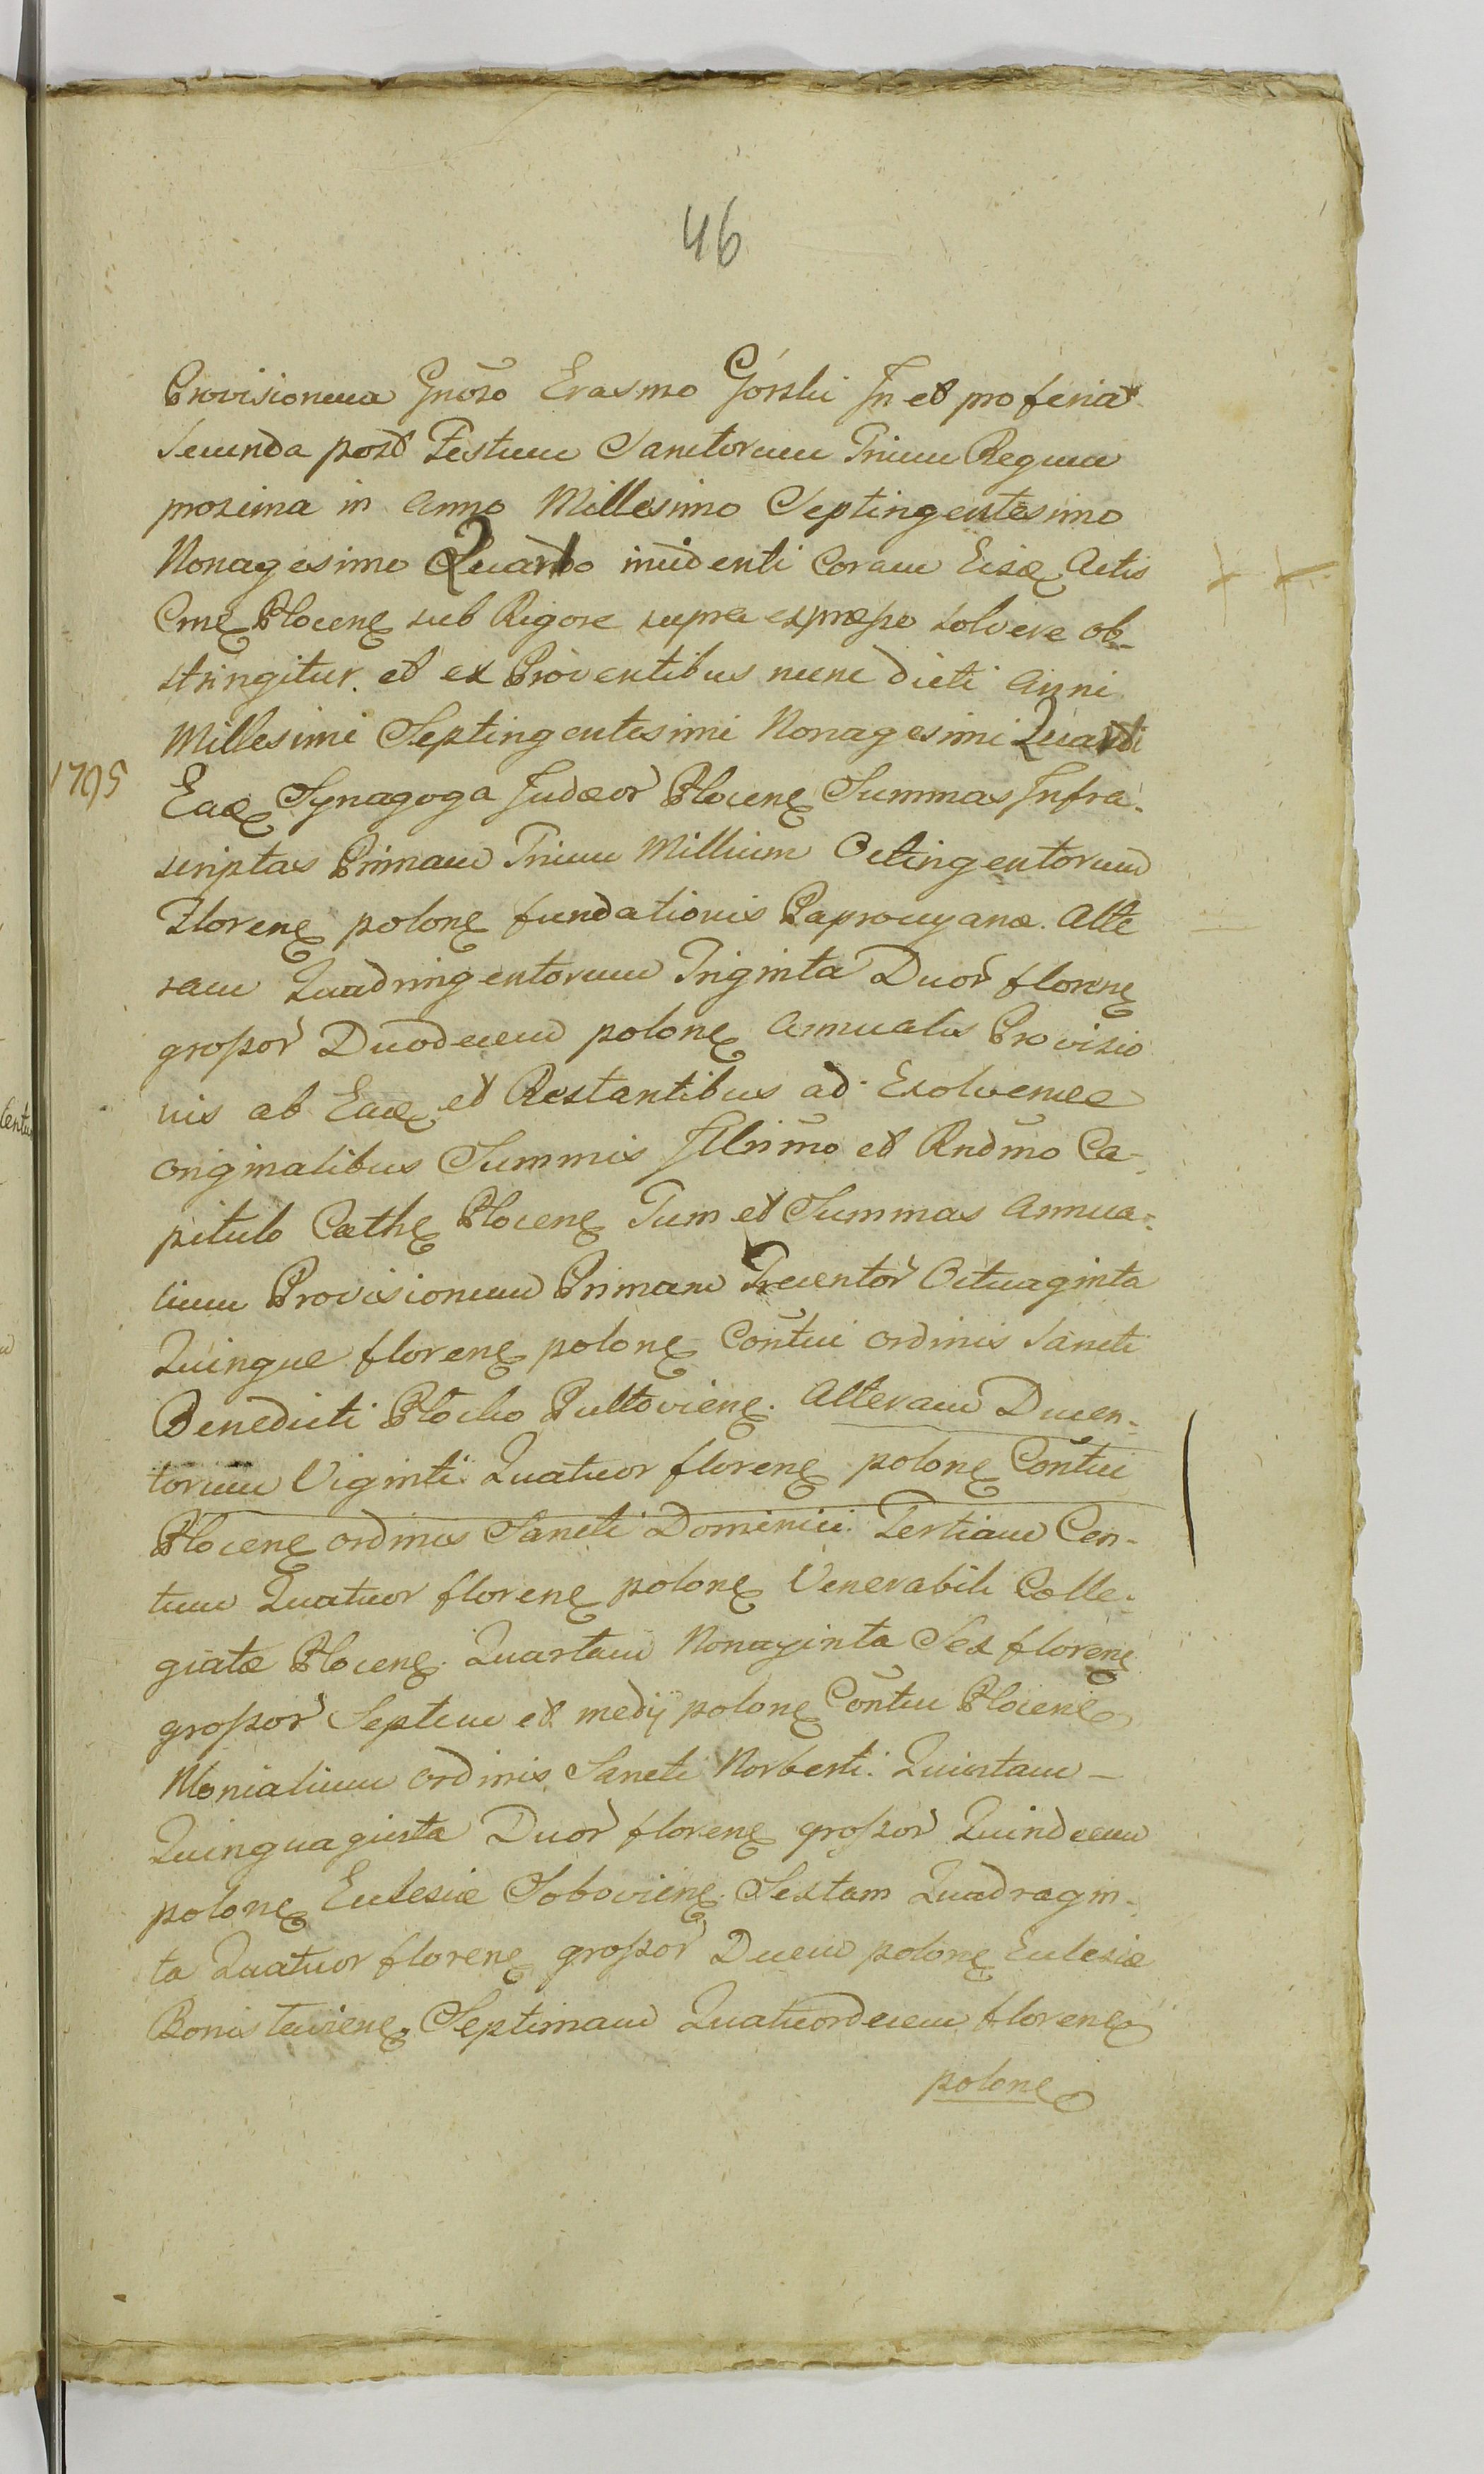 46
Provisionum Gnoso Erasmo Górski In et pro feria
secunda post Festum Sanctorum Trium Regum
proxima in Anno Millesimo Septingentesimo
Nonagesimo Quarto incidenti Coram Eisdę Actis
Cmę Plocenę sub Rigore supra expresso solvere ob-
stringitur. et ex Proventibus nunc dicti Anni
Millesimi Septingentesimi Nonagesimi Quarti
1795
Eadę Synagoga Judæor Plocenę Summas Infra-
scriptas Primam Trium Millium Octingentorum
Florenę polonę fundationis Paprocyanæ. Alte
ram Quadringentorum Triginta Duor florenę
grossor Duodecem polonę Annualis Provisio
nis ab Eadę et Restantibus ad Exolvendæ
originalibus Summis Illrimo et Rndmo Ca-
pitulo Cathę Plocenę Tum et Summas Annua-
lium Provisionum Primam Trecentor Octuaginta
Quinque florenę polonę Contui ordinis Sancti
Benedicti Plocko Pultovienę. Alteram Ducen-
torum Viginti Quatuor florenę polonę Contui
Plocenę ordinis Sancti Dominici. Tertiam Cen-
tum Quatuor florenę polonę Venerabili Colle-
giatæ Plocenę. Quartam Nonaginta Sex florenę
grossor Septem et medij polonę Contui Plocenę
Monialium ordinis Sancti Norberti. Quintam –
Quinquaginta Duor florenę grossor Quindecem
polonę Eclesiæ Sobovienę. Sextam Quadragin-
ta Quatuor florenę grossor Decem polonę Eclesiæ
Septimam Quatuordecem florenę
polonę